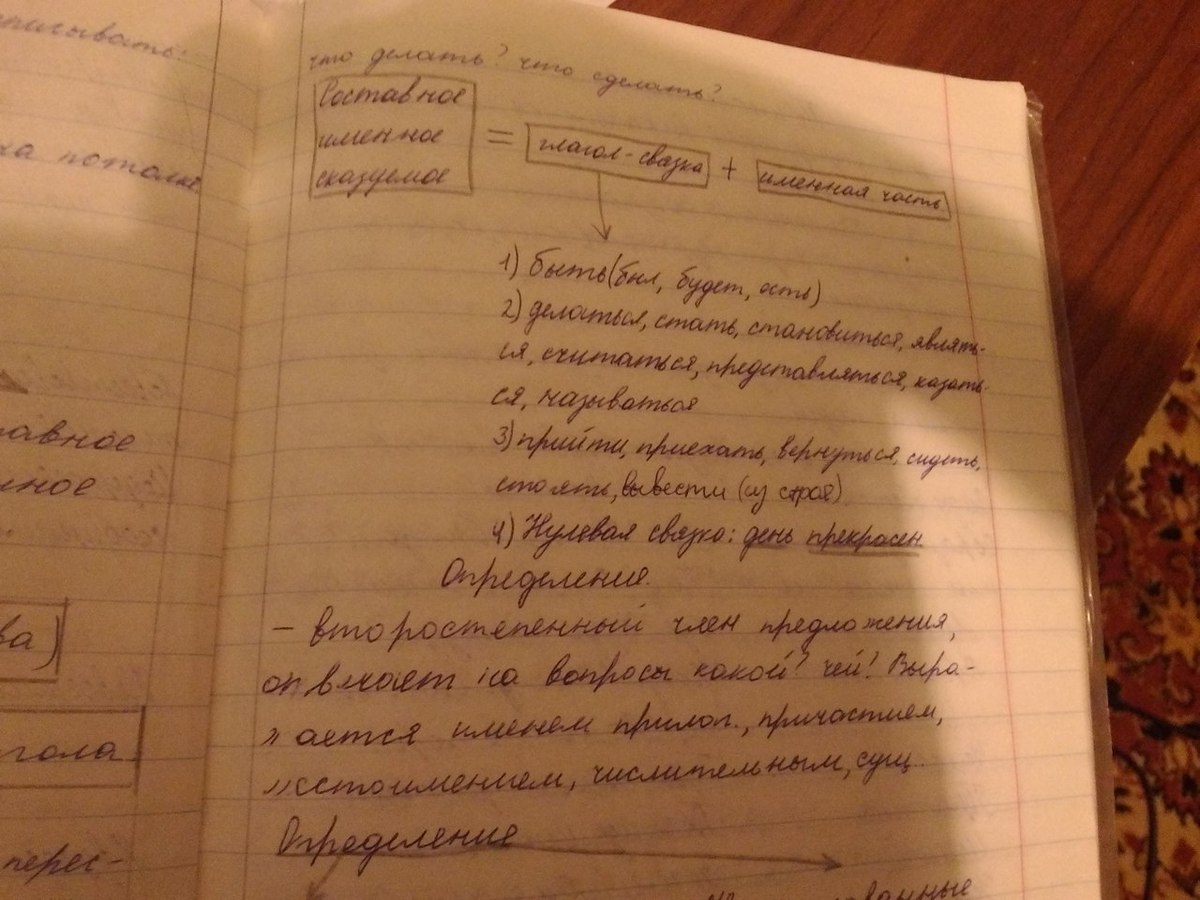 писывать:
на потолке
тавное
нное
ва)
гола
перес-
что делать? что сделать?
Составное
именное
сказуемое
= глагол-связка + именная часть
1) быть (был, будет, есть)
2) делаться, стать, становиться, являть-
ся, считаться, представляться, казать-
ся, называться
3) прийти, приехать, вернуться, сидеть,
стоять, вывести (из строя)
4) Нулевая связка: день прекрасен
Определение.
– второстепенный член предложения,
отвечает на вопросы какой? чей? Выра-
жается именем прилаг., причастием,
местоимением, числительным, сущ.
Определение
ованные